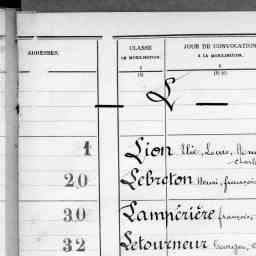 ADRESSES.
CLASSE
DE MOBILISATION.
JOUR DE CONVOCATION
À LA MOBILISATION.
L
1 Lion Elie, Louis, Henri
Charles
20 Lebreton Henri, françois
30 Lampérière françois,
32 Letourneur Georges,